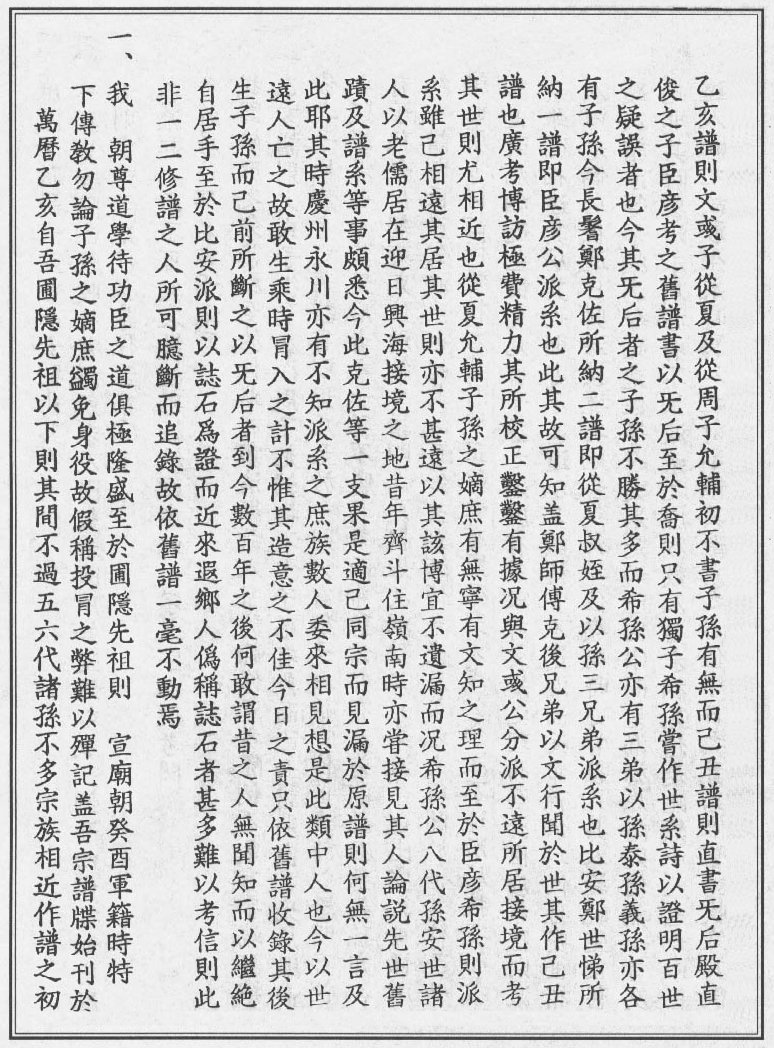 乙亥譜則文彧子從夏及從周子允輔初不書子孫有無而己丑譜則直書旡后殿直
俊之子臣彦考之舊譜書以旡后至於喬則只有獨子希孫嘗作世系詩以證明百世
之疑誤者也今其旡后者之子孫不勝其多而希孫公亦有三弟以孫泰孫義孫亦各
有子孫今長鬐鄭克佐所納二譜即從夏叔姪及以孫三兄弟派系也比安鄭世悌所
納一譜即臣彦公派系也此其故可知盖鄭師傅克後兄弟以文行聞於世其作己丑
譜也廣考博訪極費精力其所校正鑿鑿有據况與文彧公分派不遠所居接境而考
其世則尤相近也從夏允輔子孫之嫡庶有無寧有文知之理而至於臣彦希孫則派
系雖己相遠其居其世則亦不甚遠以其該博宜不遺漏而况希孫公八代孫安世諸
人以老儒居在迎日興海接境之地昔年齊斗住嶺南時亦甞接見其人論説先世舊
蹟及譜系等事頗悉今此克佐等一支果是適己同宗而見漏於原譜則何無一言及
此耶其時慶州永川亦有不知派系之庶族數人委來相見想是此類中人也今以世
遠人亡之故敢生乘時冐入之計不惟其造意之不佳今日之責只依舊譜收錄其後
生子孫而己前所斷之以旡后者到今數百年之後何敢謂昔之人無聞知而以繼絶
自居手至於比安派則以誌石爲證而近來遐鄉人僞稱誌石者甚多難以考信則此
非一二修譜之人所可臆斷而追錄故依舊譜一毫不動焉
一、我 朝尊道學待功臣之道俱極隆盛至於圃隱先祖則 宣廟朝癸酉軍籍時特
下傳敎勿論子孫之嫡庶蠲免身役故假稱投冐之弊難以殫記盖吾宗譜牒始刊於
萬曆乙亥自吾圃隱先祖以下則其間不過五六代諸孫不多宗族相近作譜之初